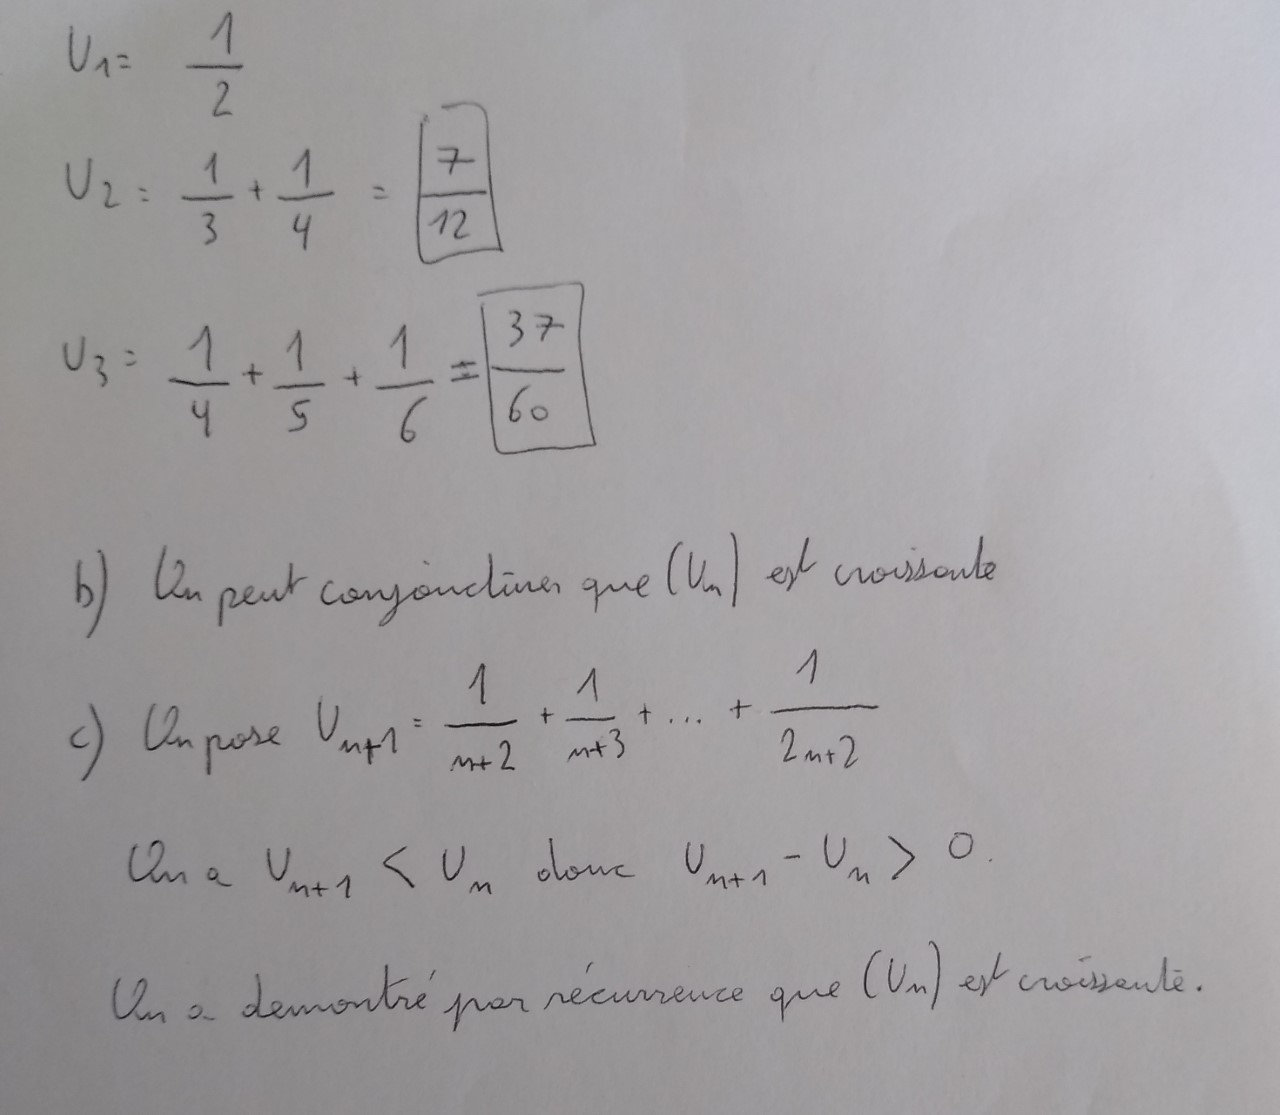 U₁ = 1/2
U₂ = 1/3 + 1/4 = 7/12
U₃ = 1/4 + 1/5 + 1/6 = 37/60
b) On peut conjoncturer que (Un) est croissante
c) On pose Uₙ₊₁ = 1/(n+2) + 1/(n+3) + ... + 1/(2n+2)
On a Uₙ₊₁ < Uₙ donc Uₙ₊₁ - Uₙ > 0.
On a demontré par récurrence que (Un) est croissante.